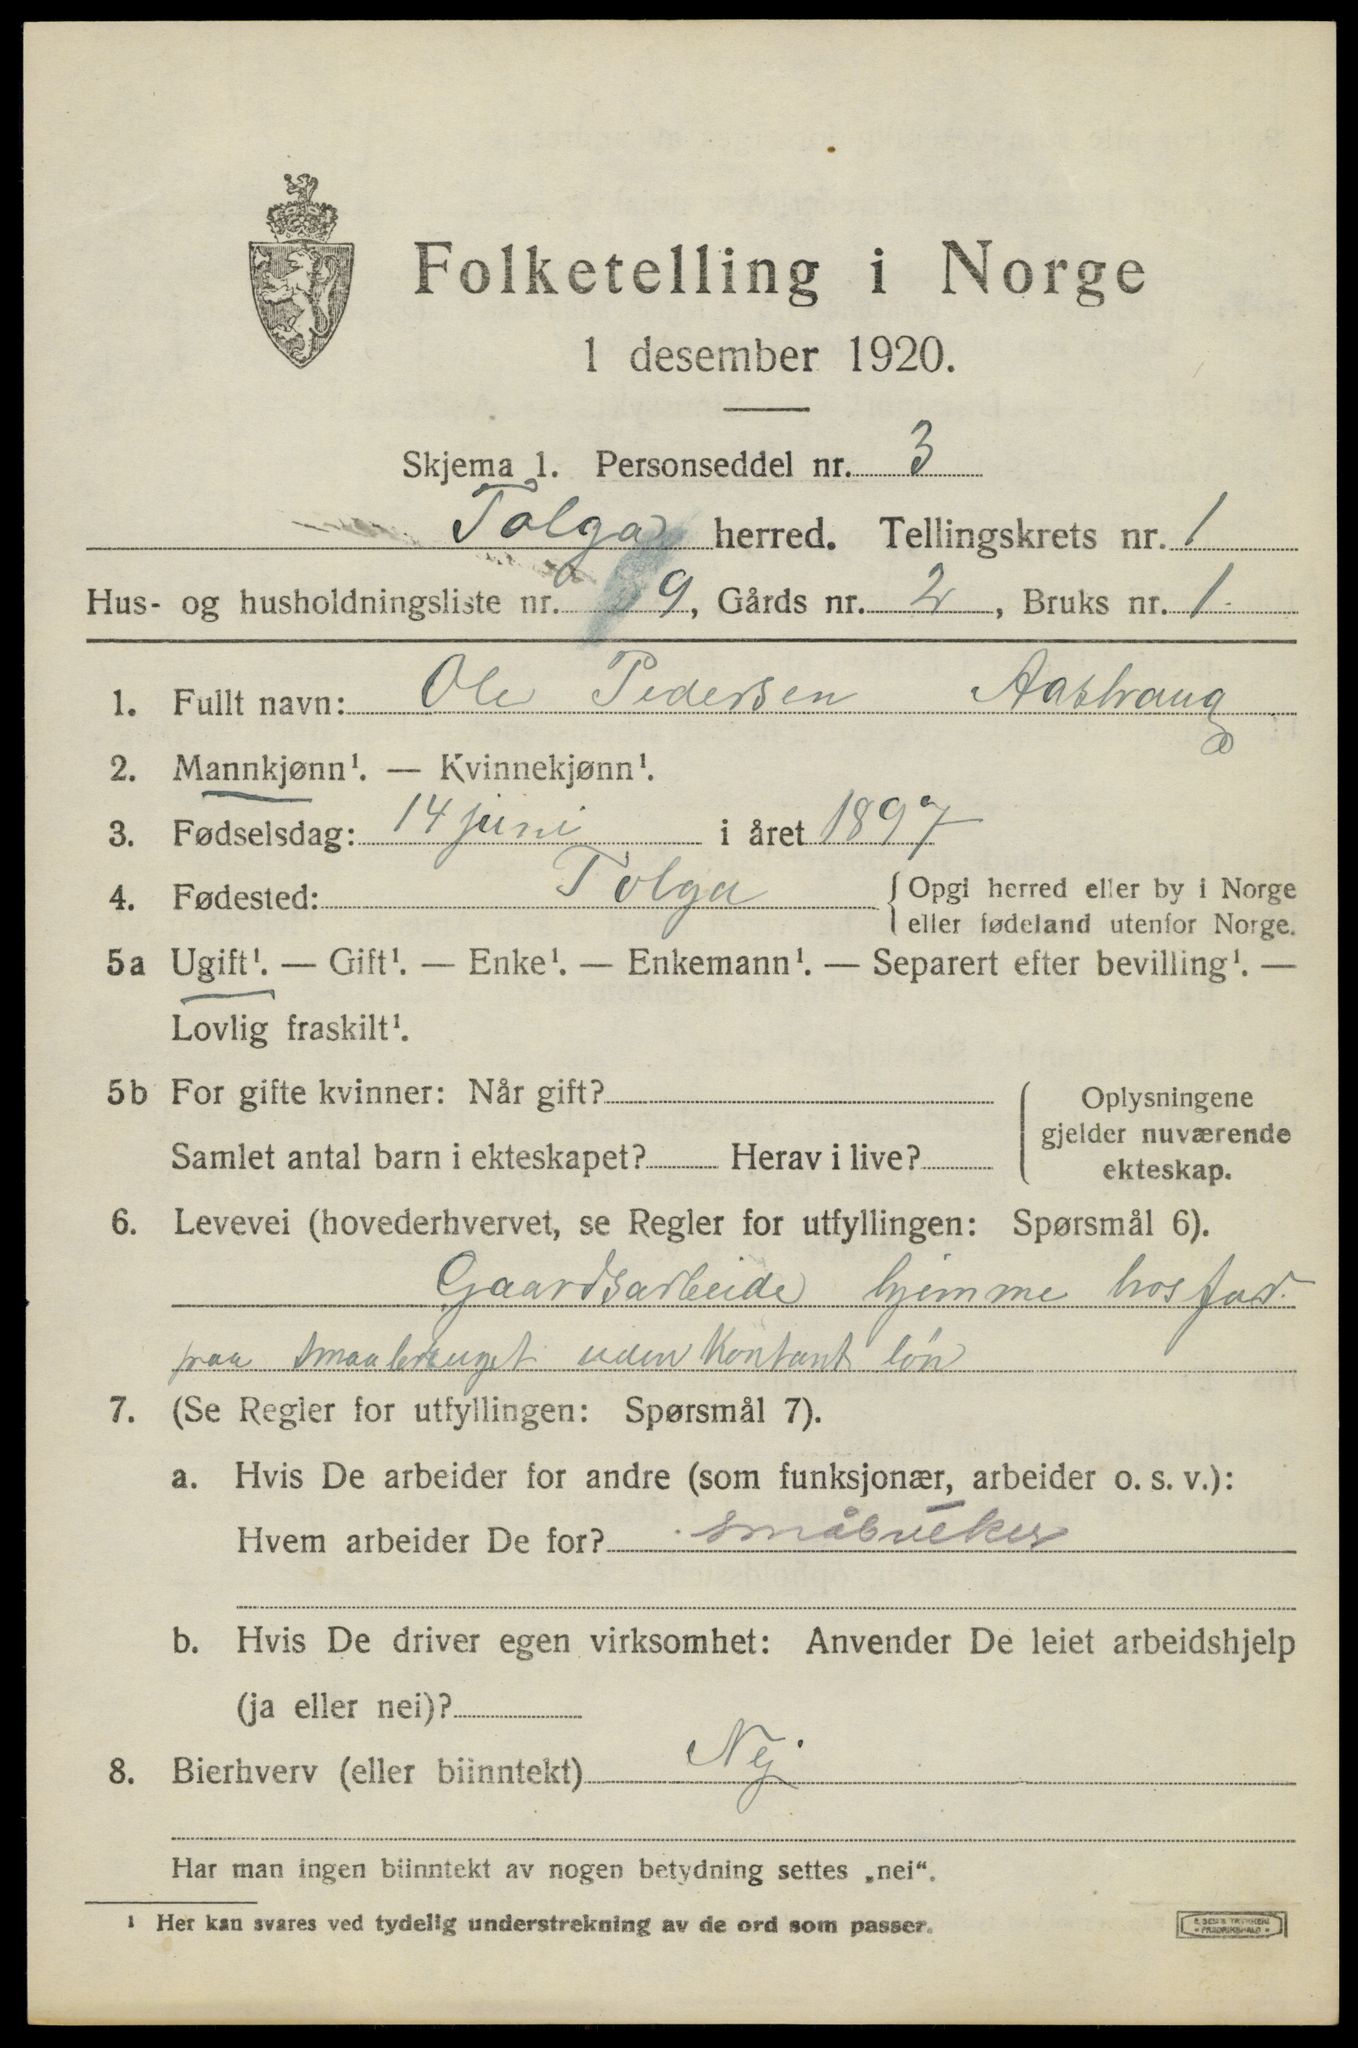 Folketelling i Norge
1 desember 1920.
Skjema 1. Personseddel nr. 3
Tolga herred. Tellingskrets nr. 1
Hus- og husholdningsliste nr. 9, Gårds nr. 2, Bruks nr. 1.
1. Fullt navn: Ole Pedersen Aastraug
2. Mannkjønn¹. — Kvinnekjønn¹.
3. Fødselsdag: 14 juni i året 1897
4. Fødested: Tolga { Opgi herred eller by i Norge
eller fødeland utenfor Norge.
5a Ugift¹. — Gift¹. — Enke¹. — Enkemann¹. — Separert efter bevilling¹. —
Lovlig fraskilt¹.
5b For gifte kvinner: Når gift?
Samlet antal barn i ekteskapet? Herav i live?
Oplysningene
gjelder nuværende
ekteskap.
6. Levevei (hovederhvervet, se Regler for utfyllingen: Spørsmål 6).
Gaardsarbeide hjemme hos far
paa smaabruget uden Kontant løn
7. (Se Regler for utfyllingen: Spørsmål 7).
a. Hvis De arbeider for andre (som funksjonær, arbeider o. s. v.):
Hvem arbeider De for? småbruker
b. Hvis De driver egen virksomhet: Anvender De leiet arbeidshjelp
(ja eller nei)?
8. Bierhverv (eller biinntekt) Nej
Har man ingen biinntekt av nogen betydning settes „nei“.
¹ Her kan svares ved tydelig understrekning av de ord som passer.